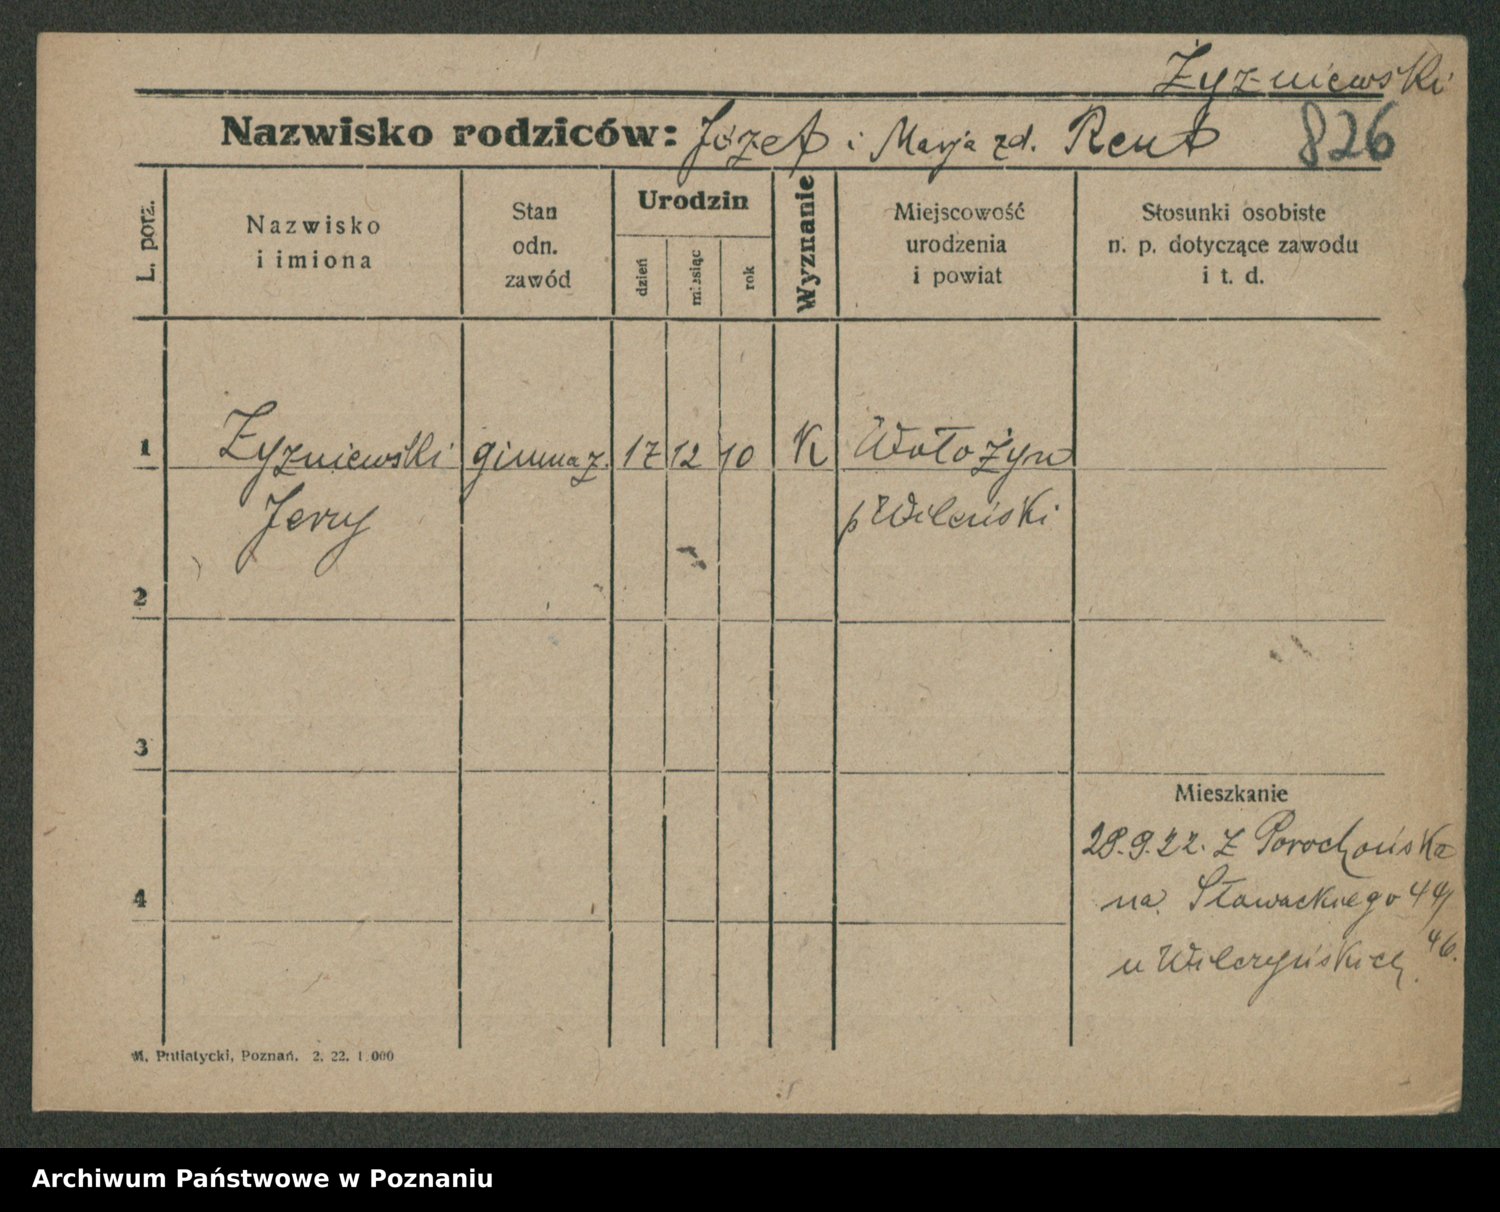 Żyzniewski
Nazwisko rodziców: Józef i Marja zd. Reut
826
L. porz.
Nazwisko
i imiona
Stan
odn.
zawód
Urodzin
dzień
miesiąc
rok
Wyznanie
Miejscowość
urodzenia
i powiat
Stosunki osobiste
n. p. dotyczące zawodu
i t. d.
1 Żyzniewski gimnaz. 17 12 10 K Wołożyn
Jerzy p Wileński
2
3
Mieszkanie
28.9.22. z Porochońska
4
na Słowackiego 44/
46.
u Wilczyńskich.
M. Putiatycki, Poznań. 2. 22. 1.000
Archiwum Państwowe w Poznaniu